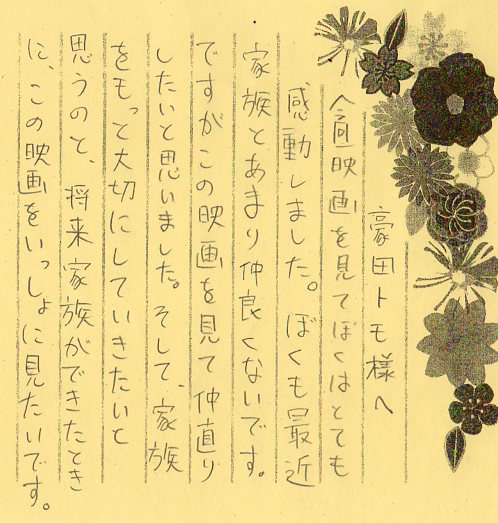 豪田トモ様へ
今回映画を見てぼくはとても
感動しました。ぼくも最近
家族とあまり仲良くないです。
ですがこの映画を見て仲直り
したいと思いました。そして、家族
をもっと大切にしていきたいと
思うのと、将来家族ができたとき
に、この映画をいっしょに見たいです。